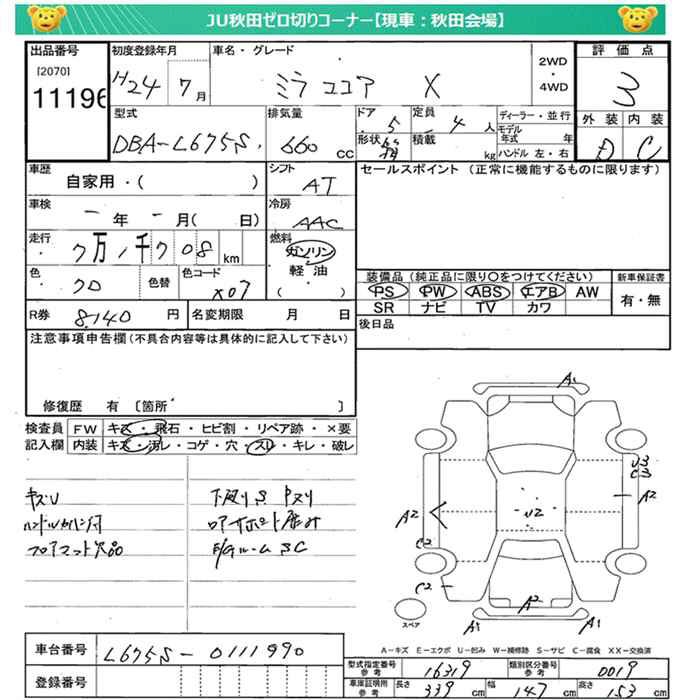 JU秋田ゼロ切りコーナー【現車：秋田会場】
出品番号 初度登録年月 車名・グレード 2WD・4WD 評価点
[2070]
11196 H24 7月 ミラココア X 3
型式 排気量 ドア 定員 ディーラー・並行 外装 内装
DBA-L675S 660cc 5 4人 モデル年式 年 D C
形状 積載 kg ハンドル 左・右
車歴 シフト セールスポイント（正常に機能するものに限ります）
自家用・( ) AT
車検 冷房
年 月 ( 日) AAC
走行 燃料
7万1千708km ガソリン
軽油
( )
色 色替 色コード 装備品（純正品に限り○をつけてください） 新車保証書
クロ X07 PS PW ABS エアB AW 有・無
SR ナビ TV カワ
R券 8,140円 名変期限 月 日 後日品
注意事項申告欄（不具合内容等は具体的に記入して下さい）
修復歴 有 〔箇所 〕
検査員 FW キズ・飛石・ヒビ割・リペア跡・×要
記入欄 内装 キズ・汚レ・コゲ・穴・スレ・キレ・破レ
キズU 下廻りS
ハンドルカバー付
フロアマット欠品
A1
U3
C3
A2
U2
A2
C2
C2
A2
A1 A1
スペア
A－キズ E－エクボ U－凹み W－補修跡 S－サビ C－腐食 XX－交換済
車台番号 L675S-0111990
型式指定番号 参考 16319 類別区分番号 参考 0019
登録番号 車庫証明用 参考 長さ 339cm 幅 147cm 高さ 153cm